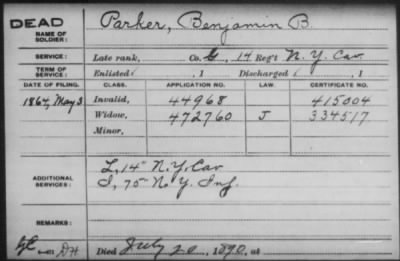 DEAD
NAME OF SOLDIER:
Parker, Benjamin B.
SERVICE:
Late rank, Co. G, 14 Reg't N. Y. Cav
TERM OF SERVICE:
Enlisted , 1 Discharged , 1
DATE OF FILING. CLASS. APPLICATION NO. LAW. CERTIFICATE NO.
1864, May 3 Invalid, 44968 415004
Widow, 472760 J 334517
Minor,
ADDITIONAL SERVICES:
L, 14" N. Y. Cav
I, 75" N. Y. Inf.
REMARKS:
Died July 20, 1890, at